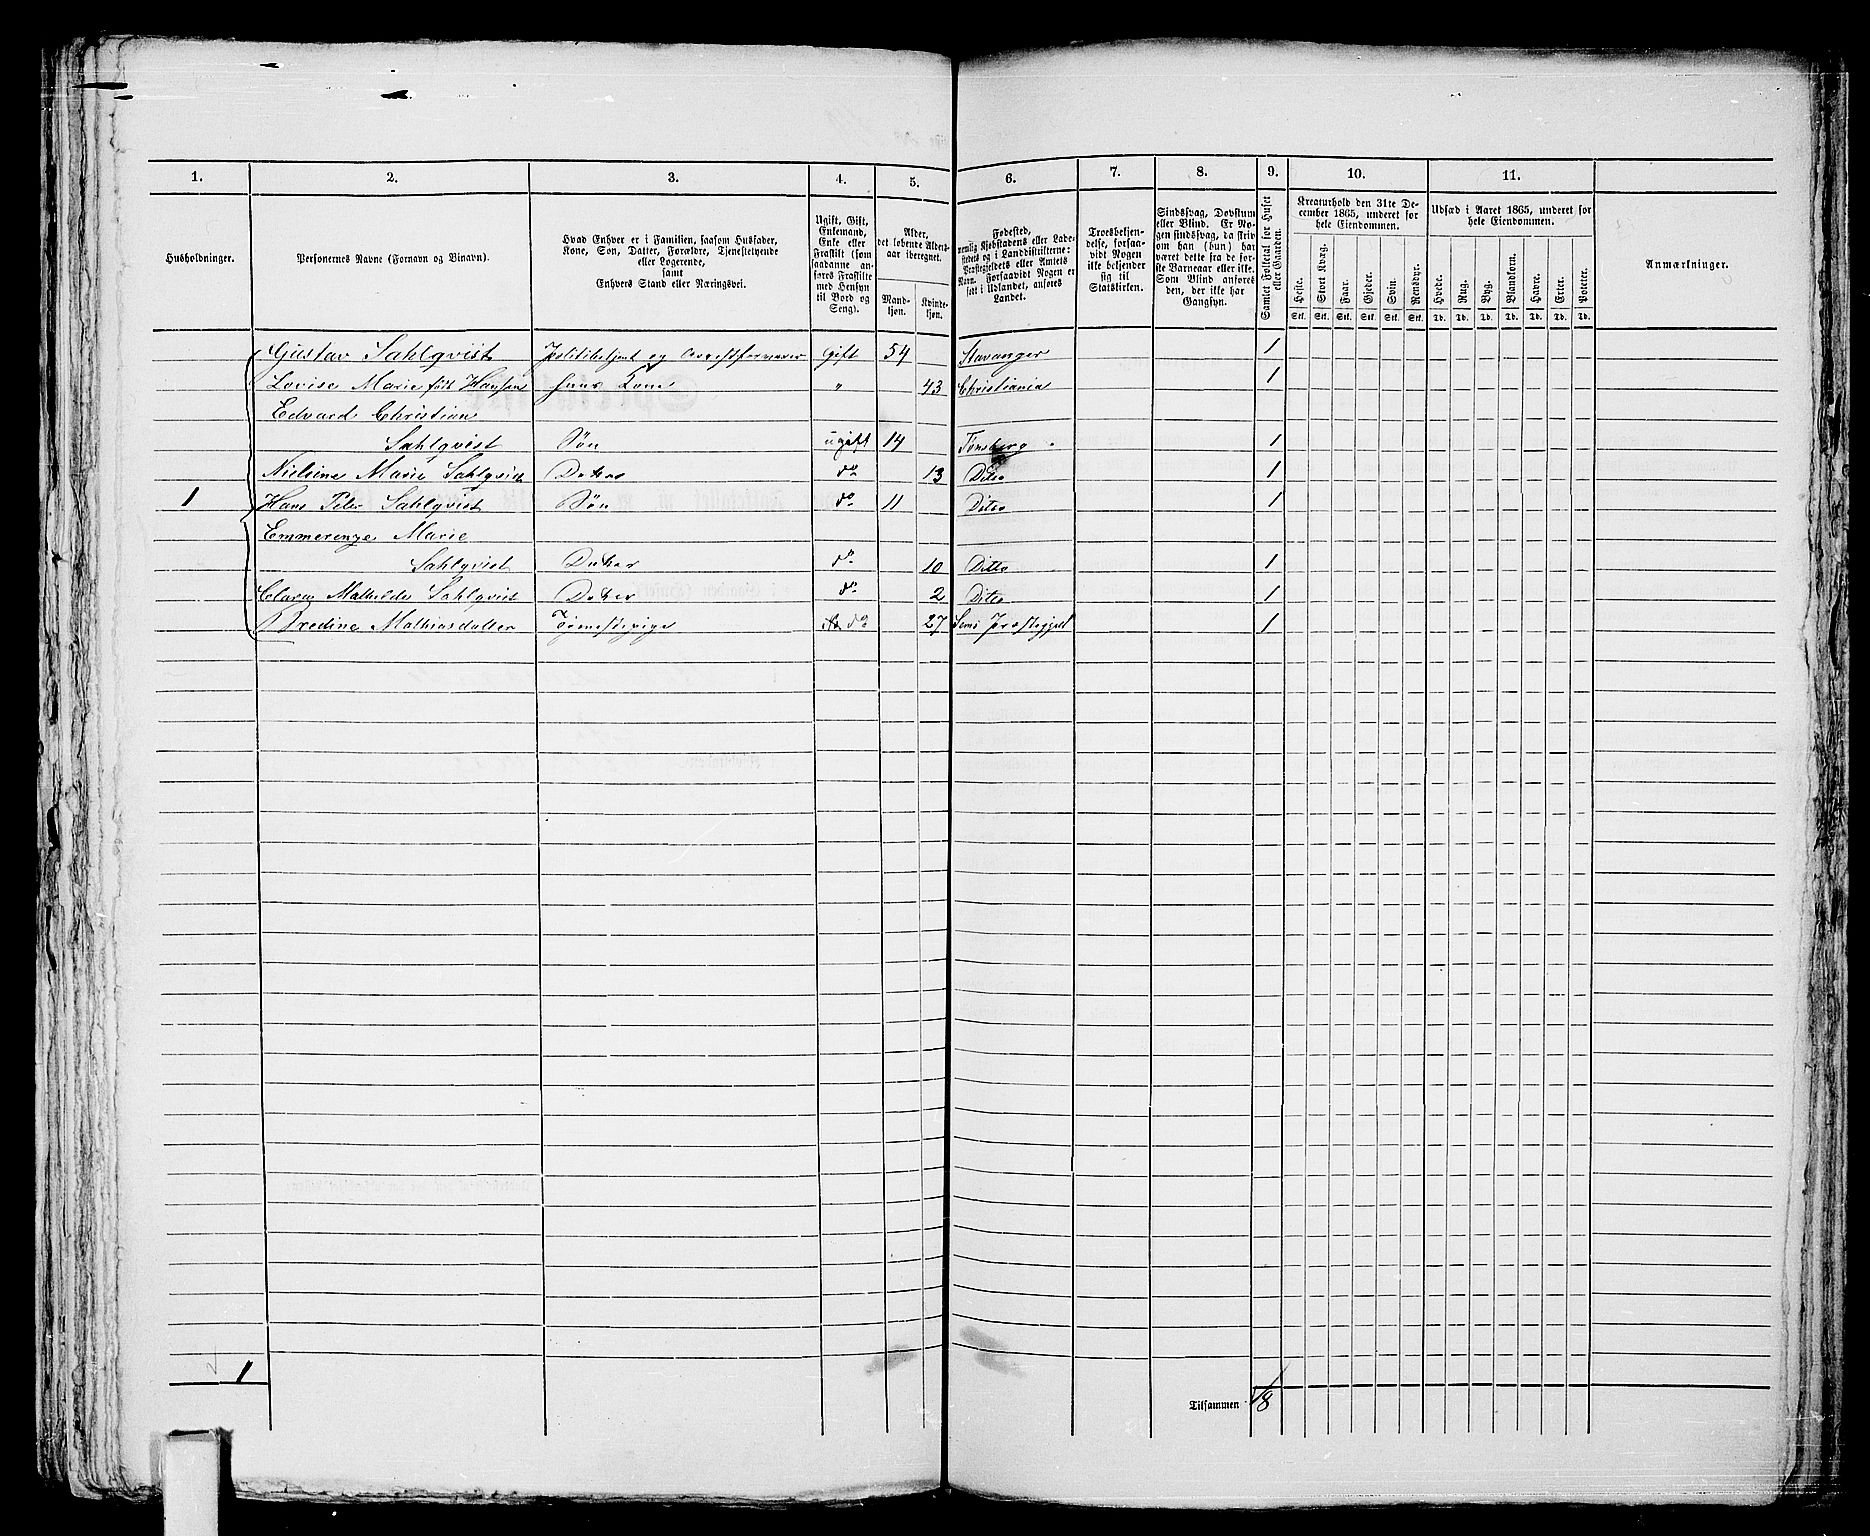 1. 2. 3. 4. 5. 6. 7. 8. 9. 10. 11.
Husholdninger.
Personernes Navne (Fornavn og Binavn).
Hvad Enhver er i Familien, saasom Husfader,
Kone, Søn, Datter, Forældre, Tjenestetyende
eller Logerende,
samt
Enhvers Stand eller Næringsvei.
Ugift, Gift,
Enkemand,
Enke eller
Fraskilt (som
saadanne an-
føres Fraskilte
med Hensyn
til Bord og
Seng).
Alder,
det løbende Alders-
aar iberegnet.
Mand-
kjøn.
Kvinde-
kjøn.
Fødested,
nemlig Kjøbstadens eller Lade-
stedets og i Landdistrikterne:
Præstegjeldets eller Amtets
Navn. Forsaavidt Nogen er
født i Udlandet, anføres
Landet.
Troesbekjen-
delse, forsaa-
vidt Nogen
ikke bekjender
sig til
Statskirken.
Sindssvag, Døvstum
eller Blind. Er No-
gen sindssvag, da skriv
om han (hun) har
været dette fra de før-
ste Barneaar eller ikke.
Som Blind anføres
den, der ikke har
Gangsyn.
Samlet Folketal for Huset
eller Gaarden.
Kreaturhold den 31te De-
cember 1865, underet for
hele Eiendommen.
Heste. Stort Kvæg. Faar. Gjeder. Svin. Rensdyr.
Stk. Stk. Stk. Stk. Stk. Stk.
Udsæd i Aaret 1865, underet for
hele Eiendommen.
Hvede. Rug. Byg. Blandkorn. Havre. Erter. Poteter.
Td. Td. Td. Td. Td. Td. Td.
Anmærkninger.
Gustav Sahlqvist Politibetjent og Arrestforvarer Gift 54 Stavanger 1
Lovise Marie født Hansen hans Kone " 43 Christiania 1
Edvard Christian
Sahlqvist Søn ugift 14 Tønsberg 1
Nielsine Marie Sahlqvist Datter do 13 Ditto 1
1 Hans Peter Sahlqvist Søn do 11 Ditto 1
Emmerenze Marie
Sahlqvist Datter do 10 Ditto 1
Clara Mathilde Sahlqvist Datter do 2 Ditto 1
Bredine Mathiasdatter Tjenestepige do 27 Sems Præstegjeld 1
1
Tilsammen 8